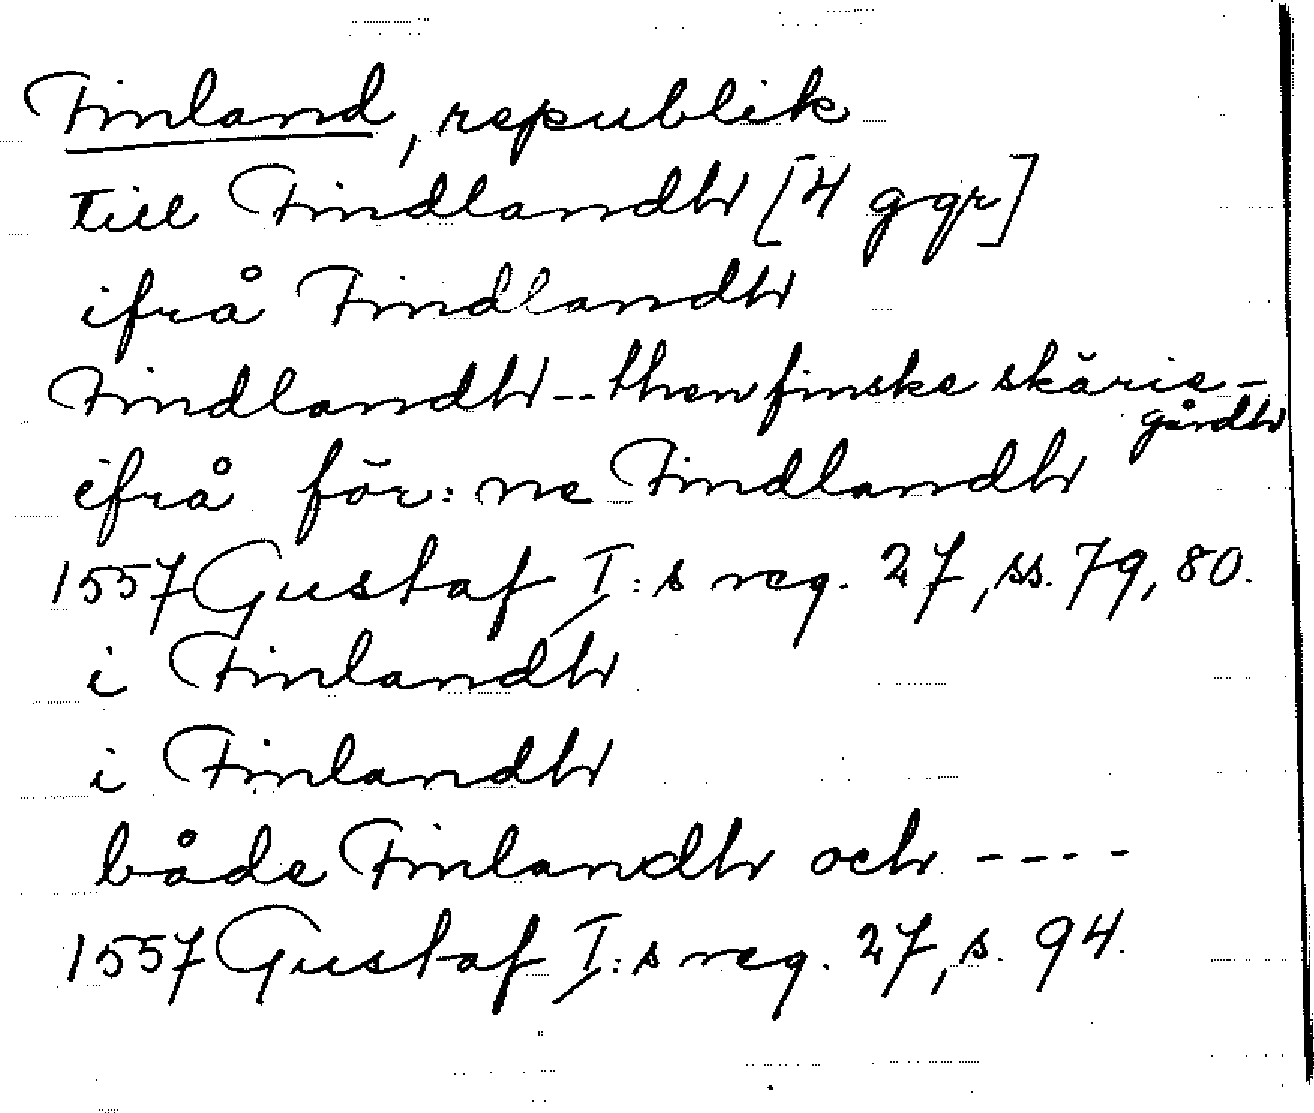 Finland, republik
till Findlandh [4 ggr]
ifrå Findlandh
Findlandh -- then finske skärie-
gårdh
ifrå för: ne Findlandh
1557 Gustaf I:s reg. 27, ss. 79, 80.
i Finlandh
i Finlandh
både Finlandh och ----
1557 Gustaf I:s reg. 27, s. 94.